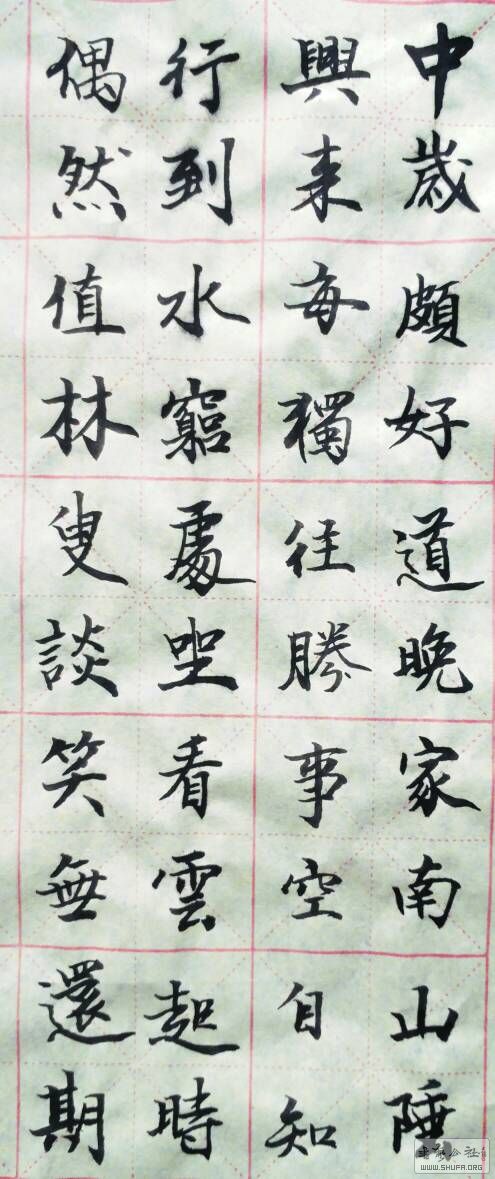 中歲頗好道晚家南山陲
興来每獨往勝事空自知
行到水窮處坐看雲起時
偶然值林叟談笑無還期
WWW.SHUFA.ORG